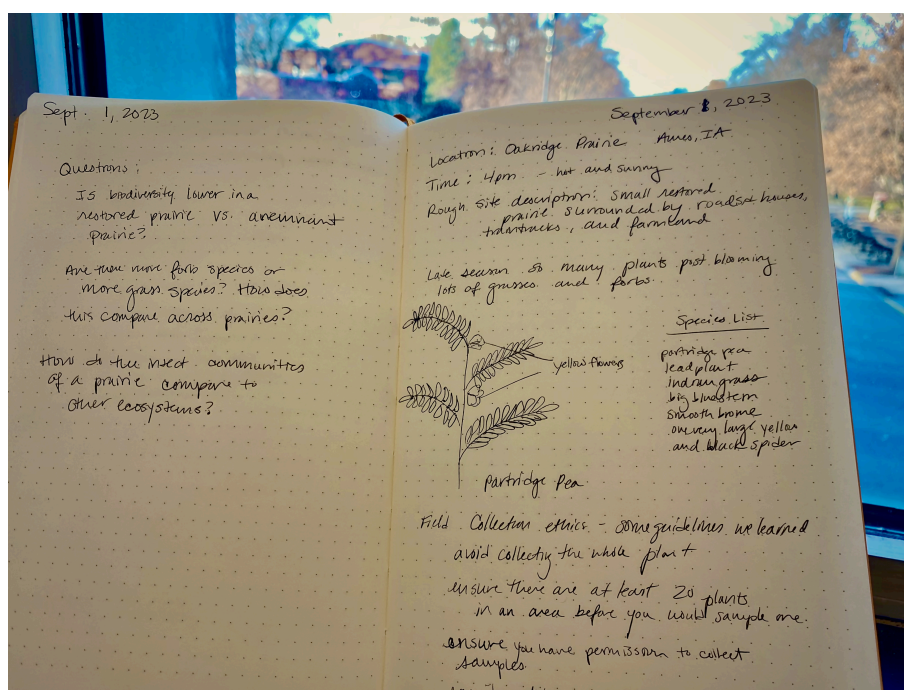 Sept. 1, 2023
Questions:
Is biodiversity lower in a
restored prairie vs. a remnant
prairie?
Are there more forb species or
more grass species? How does
this compare across prairies?
How do the insect communities
of a prairie compare to
other ecosystems?
September 1, 2023
Location: Oakridge Prairie Ames, IA
Time: 4pm - hot and sunny
Rough site description: small restored
prairie surrounded by roads houses,
traintracks, and farmland
Late season so many plants post blooming
lots of grasses and forbs.
yellow flowers
Partridge Pea
Species List
partridge pea
leadplant
indian grass
big bluestem
smooth brome
one very large yellow
and black spider
Field Collection ethics - some guidelines we learned
avoid collectig the whole plant
ensure there are at least 20 plants
in an area before you would sample one.
ensure you have permission to collect
samples